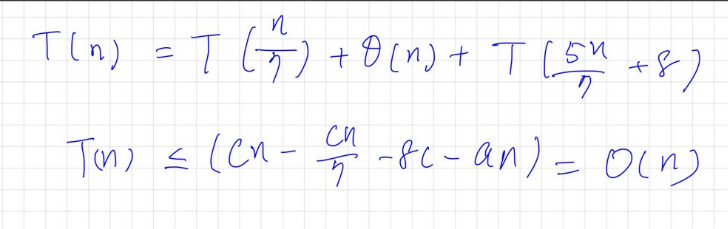 T(n) = T(n/7) + θ(n) + T(5n/7 + 8)
T(n) ≤ (cn - cn/7 - 8c - an) = O(n)